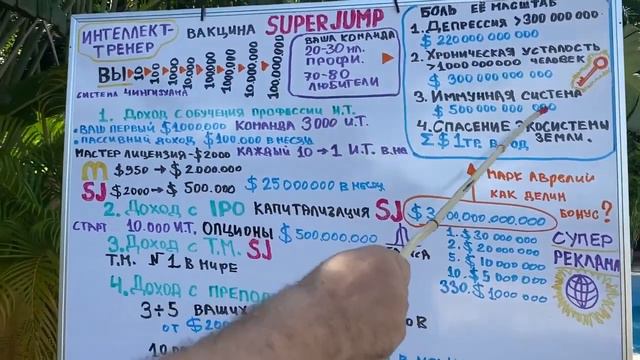 ИНТЕЛЛЕКТ-
ТРЕНЕР
ВАКЦИНА SUPERJUMP
ВЫ 10 100 1000 10000 100000 1000000 10.000.000 100.000.000
СИСТЕМА ЧИНГИЗХАНА
ВАША КОМАНДА
20-30 мл.
ПРОФИ.
70-80
ЛЮБИТЕЛИ
БОЛЬ ЕЁ МАСШТАБ
1. ДЕПРЕССИЯ >300 000 000
$ 220 000 000 000
2. ХРОНИЧЕСКАЯ УСТАЛОСТЬ
>1000 000 000 ЧЕЛОВЕК
$ 300 000 000 000
3. ИММУННАЯ СИСТЕМА
$ 500 000 000 000
4. СПАСЕНИЕ ЭКОСИСТЕМЫ
ЗЕМЛИ.
Σ $ 1 ТР. В ГОД
1. ДОХОД С ОБУЧЕНИЯ ПРОФЕССИИ И.Т.
• ВАШ ПЕРВЫЙ $1000000 КОМАНДА 3000 И.Т.
• ПАССИВНЫЙ ДОХОД $100.000 В МЕСЯЦ
МАСТЕР ЛИЦЕНЗИЯ-$2000 КАЖДЫЙ 10→1 И.Т. В
M $350 → $2.000.000
SJ $2000→$500.000 $25000000 В МЕСЯЦ
2. ДОХОД С IPO КАПИТАЛИЗАЦИЯ SJ
СТАРТ 10.000 И.Т. ОПЦИОНЫ $500.000.000
3. ДОХОД С Т.М. SJ
Т.М. N1 В МИРЕ
4. ДОХОД С
3÷5 ВАШИХ
ОТ
МАРК АВРЕЛИЙ
КАК ДЕЛИЛ
БОНУС?
1. $30 000 000
2. $20 000 000
5. $10 000 000
10. $5 000 000
330. $1000 000
СУПЕР
РЕКЛАМА